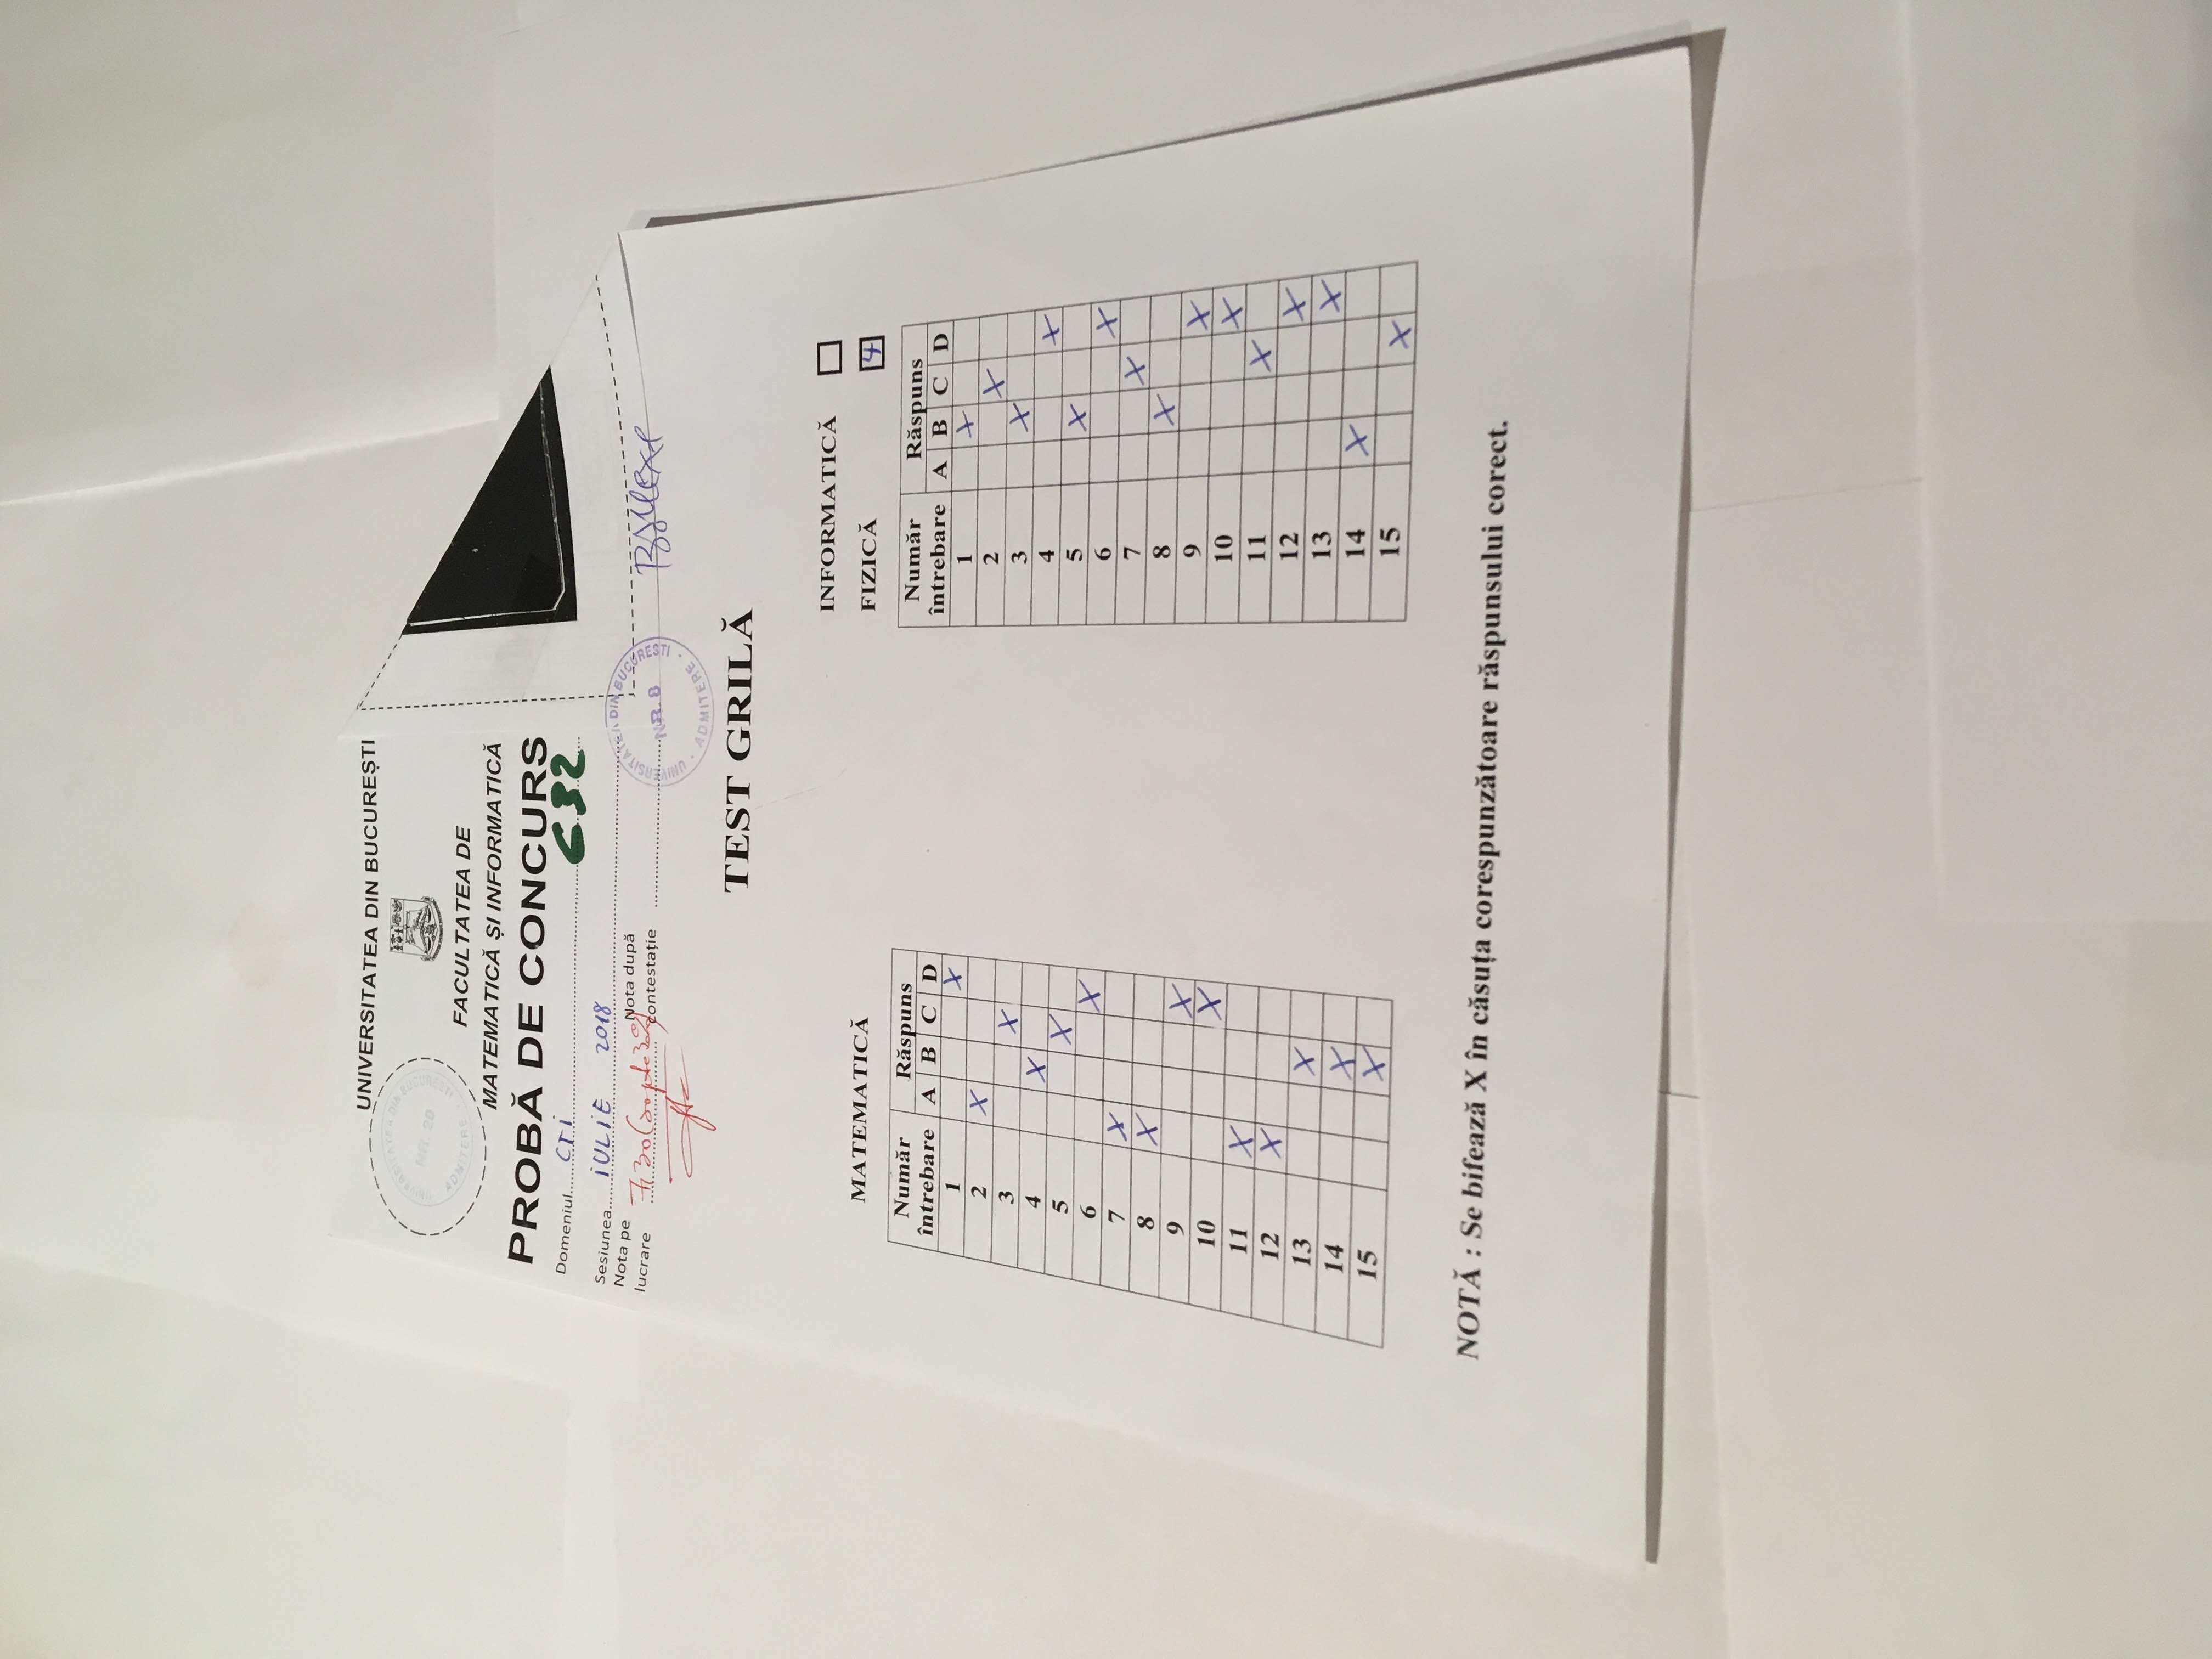 UNIVERSITATEA DIN BUCUREȘTI
UNIVERSITATEA DIN BUCUREȘTI
NR. 20
ADMITERE
FACULTATEA DE
MATEMATICĂ ȘI INFORMATICĂ
PROBĂ DE CONCURS
Domeniul..... CTI C32
Sesiunea.... IULIE 2018
Nota pe lucrare 7,30
Nota după contestație
UNIVERSITATEA DIN BUCUREȘTI
NR. 8
ADMITERE
TEST GRILĂ
MATEMATICĂ
Număr întrebare Răspuns
A B C D
1 X
2 X
3 X
4 X
5 X
6 X
7 X
8 X
9 X
10 X
11 X
12 X
13 X
14 X
15 X
INFORMATICĂ
FIZICĂ 4
Număr întrebare Răspuns
A B C D
1 X
2 X
3 X
4 X
5 X
6 X
7 X
8 X
9 X
10 X
11 X
12 X
13 X
14 X
15 X
NOTĂ : Se bifează X în căsuța corespunzătoare răspunsului corect.